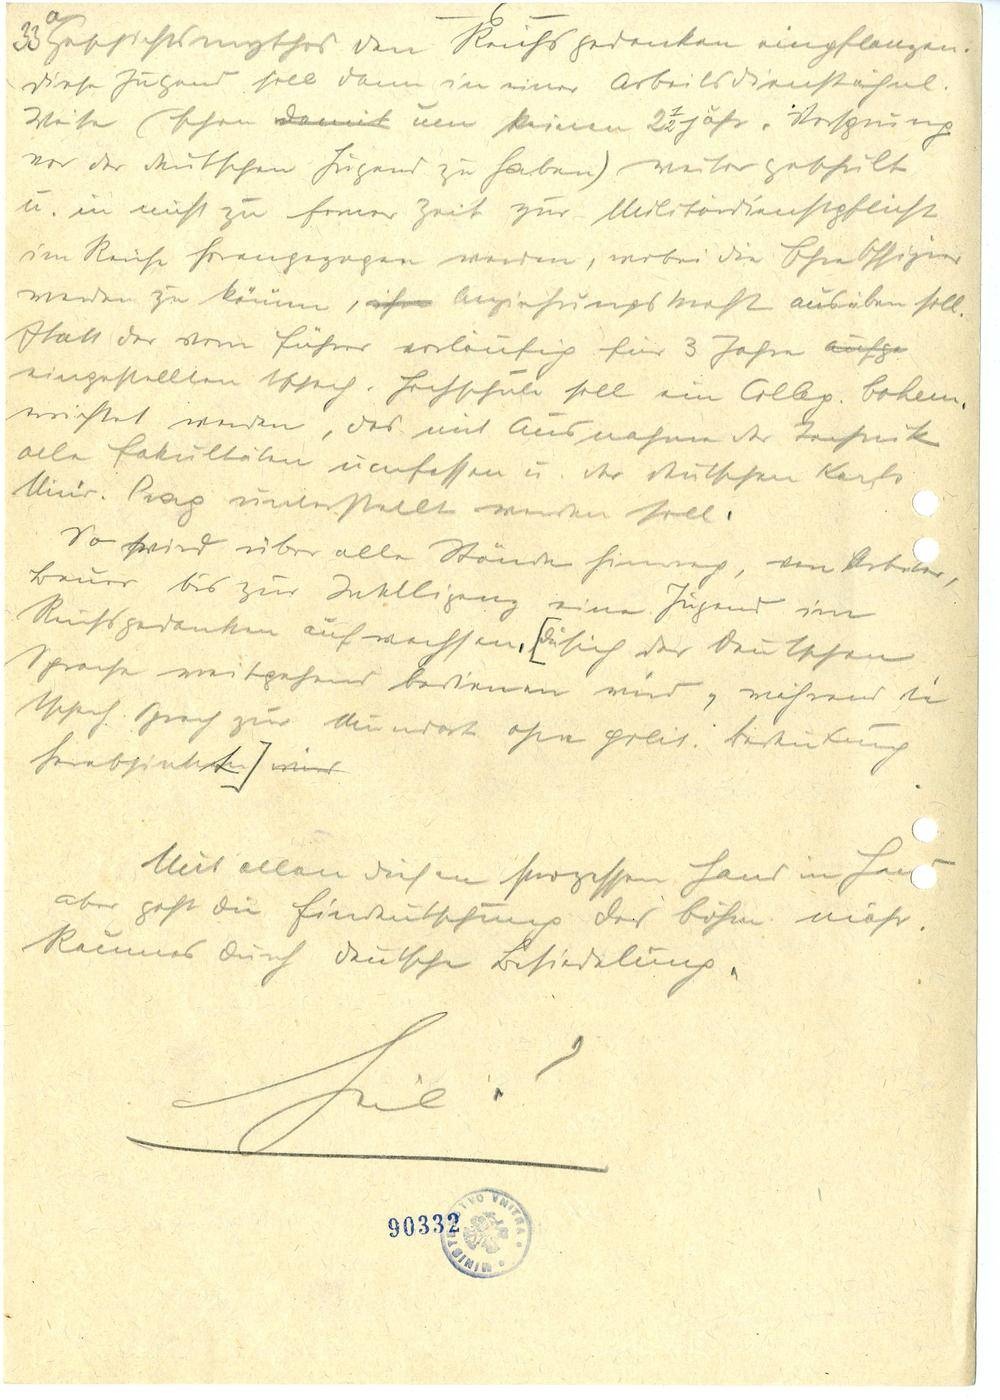 – 6 –
33a Geschichtsmythos den Reichsgedanken einpflanzen.
diese Jugend soll dann in einer Arbeitsdienstähnl.
Weise (schon damit um keinen 2½ jähr. Vorsprung
vor der deutschen Jugend zu haben) weiter geschult
u. in nicht zu ferner Zeit zur Militärdienstpflicht
im Reiche herangezogen werden, wobei die Ehre Offizier
werden zu können, ihre Anziehungskraft ausüben soll.
Statt der vom Führer vorläufig für 3 Jahre aufge
eingestellten tschech. Hochschule soll ein Colleg. bohem.
errichtet werden, das mit Ausnahme der Technik
alle Fakultäten umfassen u. der deutschen Karls
Univ. Prag unterstellt werden soll.
So wird über alle Stände hinweg, vom Arbeiter,
Bauer bis zur Intelligenz eine Jugend im
Reichsgedanken aufwachsen, [die sich der deutschen
Sprache weitgehend bedienen wird, während die
tschech. Sprach zur Mundart ohne polit. Bedeutung
herabsinkt] wird
Mit allen diesen Prozessen Hand in Hand
aber geht die Eindeutschung des böhm. mähr.
Raumes durch deutsche Besiedelung.
90332
MINISTERSTVO VNITRA